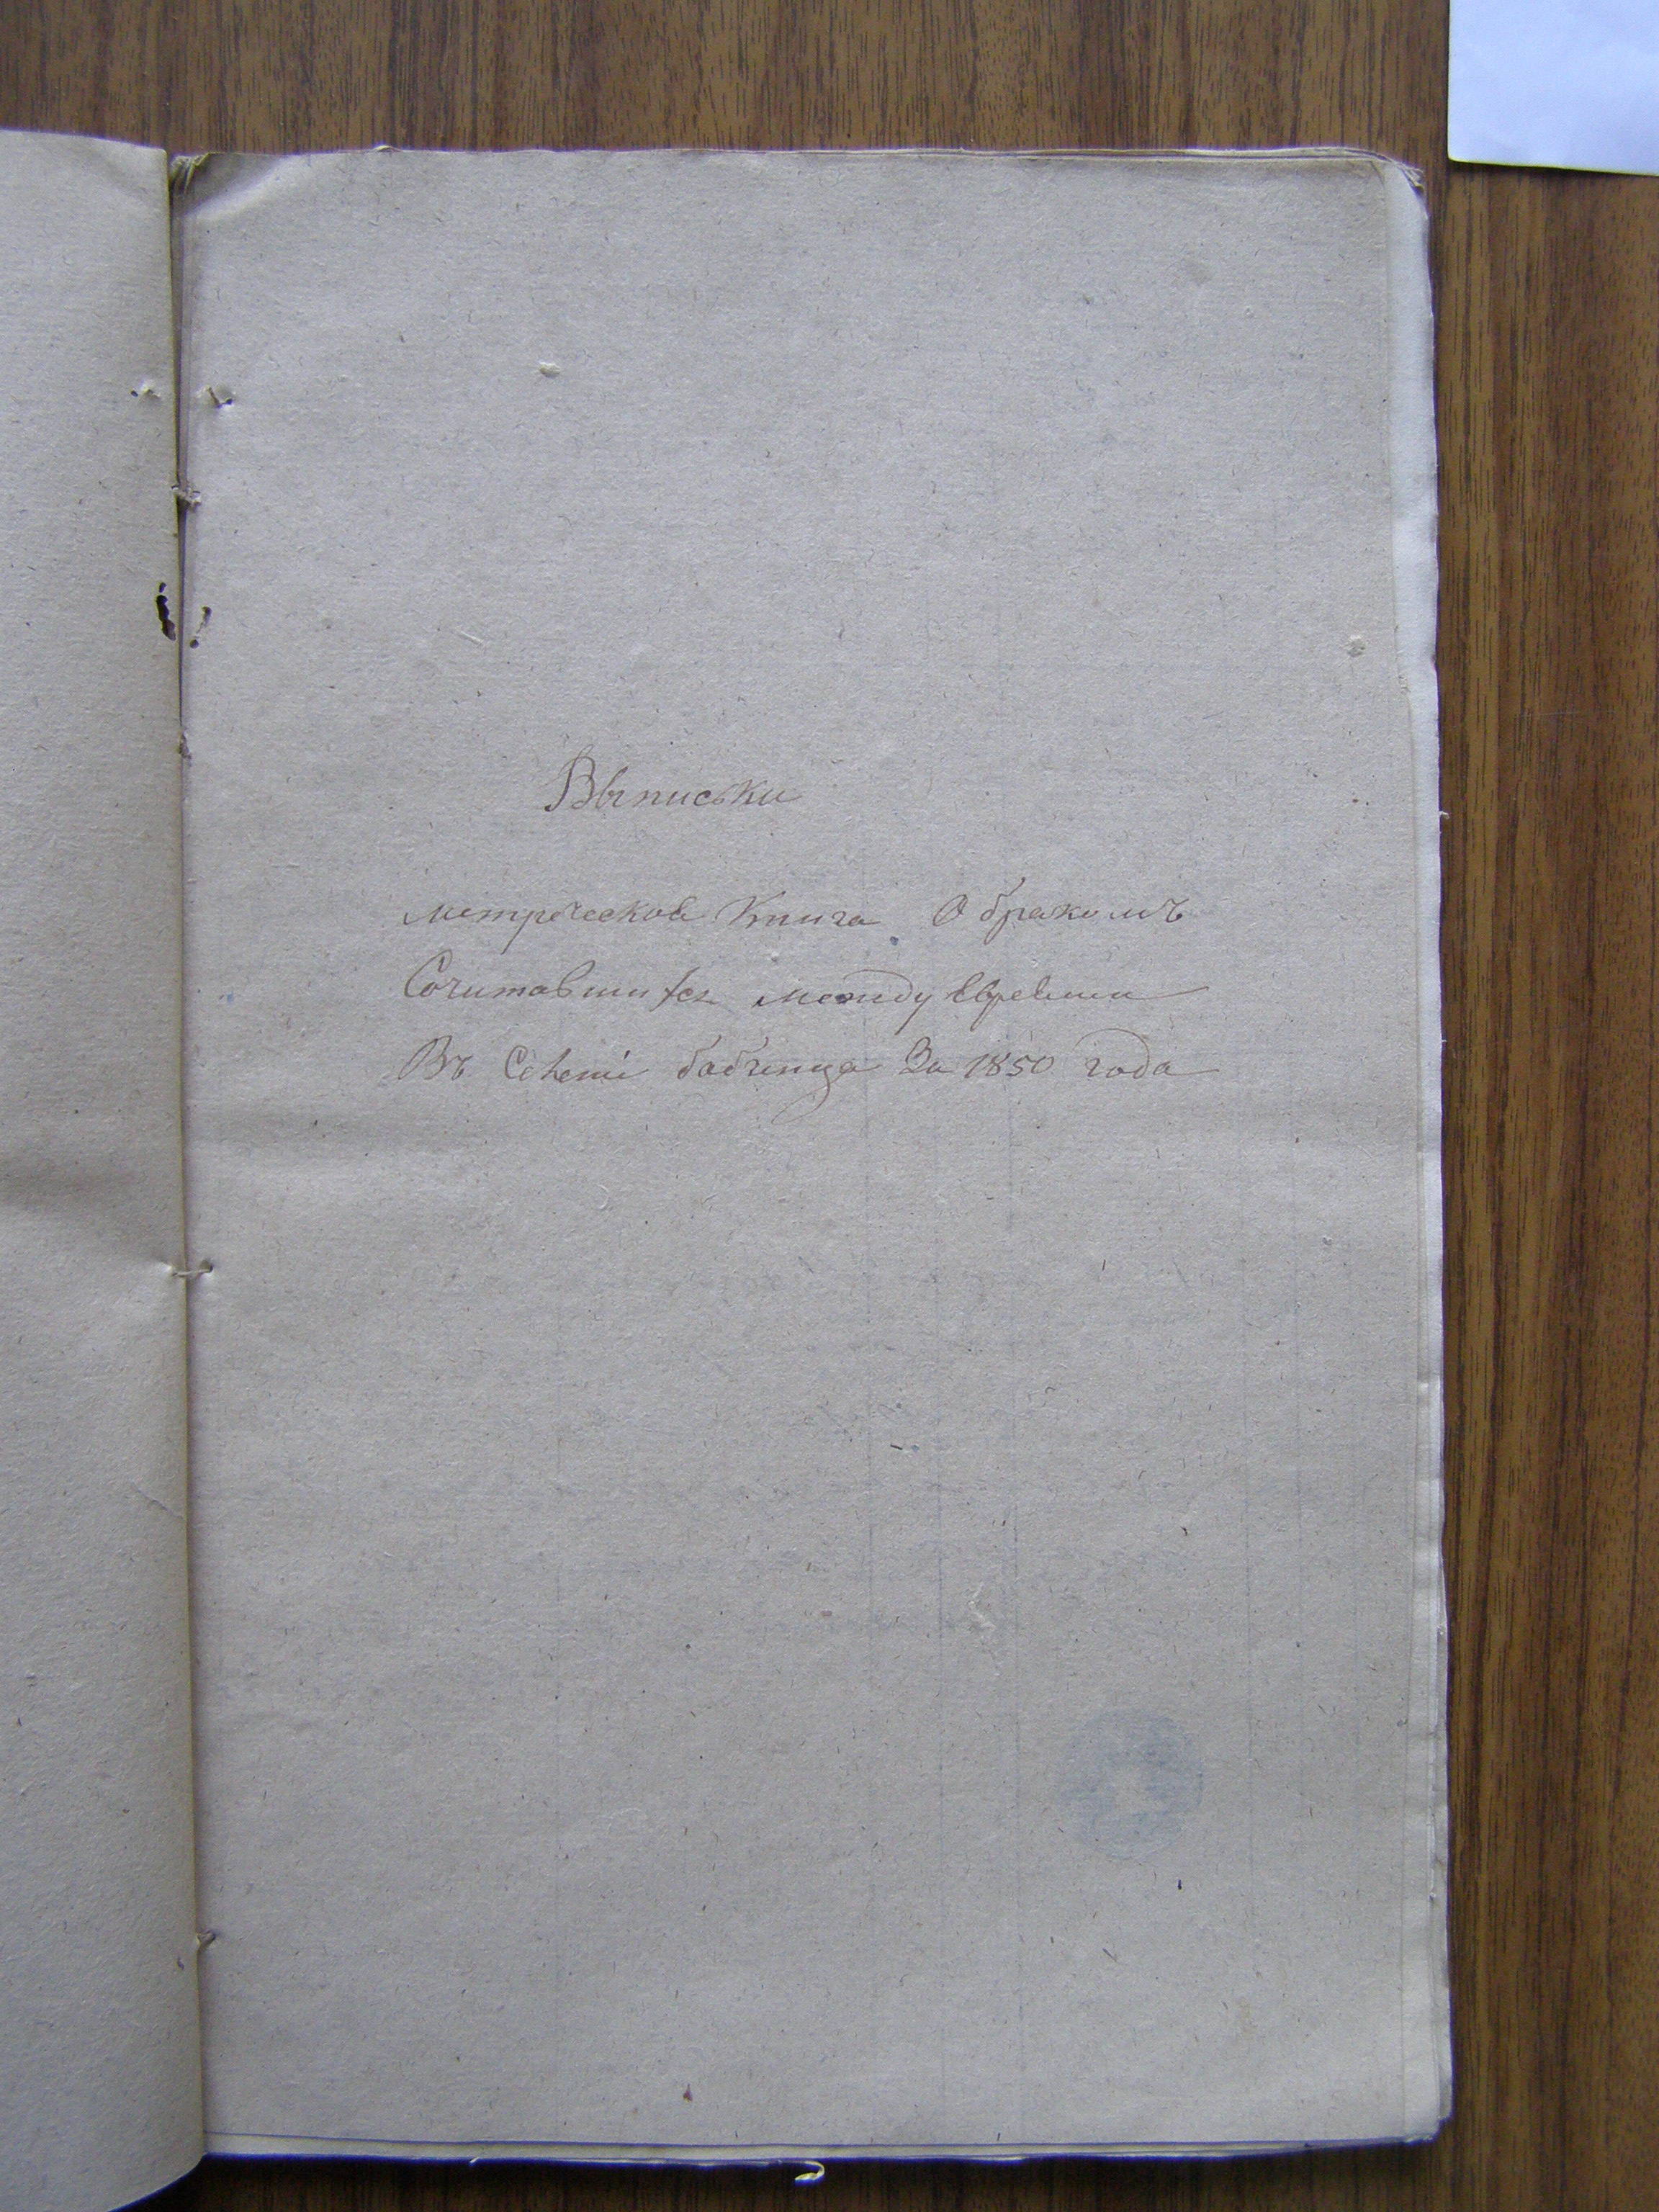 Выписьки
метрческое Книга О бракомъ
Сочитавшихся между Евреями
Въ Селеніи бабчинца За 1850 года